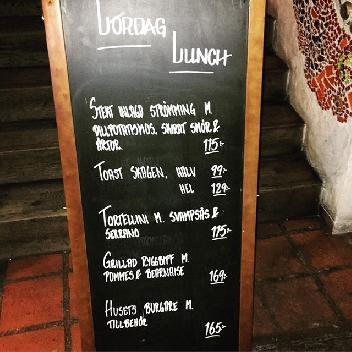 LÖRDAG
LUNCH
STEKT INLAGD STRÖMMING M.
DILLPOTATISMOS, SKIRAT SMÖR &
ÄRTOR 115:-
TOAST SKAGEN, HALV 99:-
HEL 129:-
TORTELLINI M. SVAMPSÅS &
SERRANO 115:-
GRILLAD RYGGBIFF M.
POMMES & BEARNAISE 169:-
HUSETS BURGARE M.
TILLBEHÖR 165:-